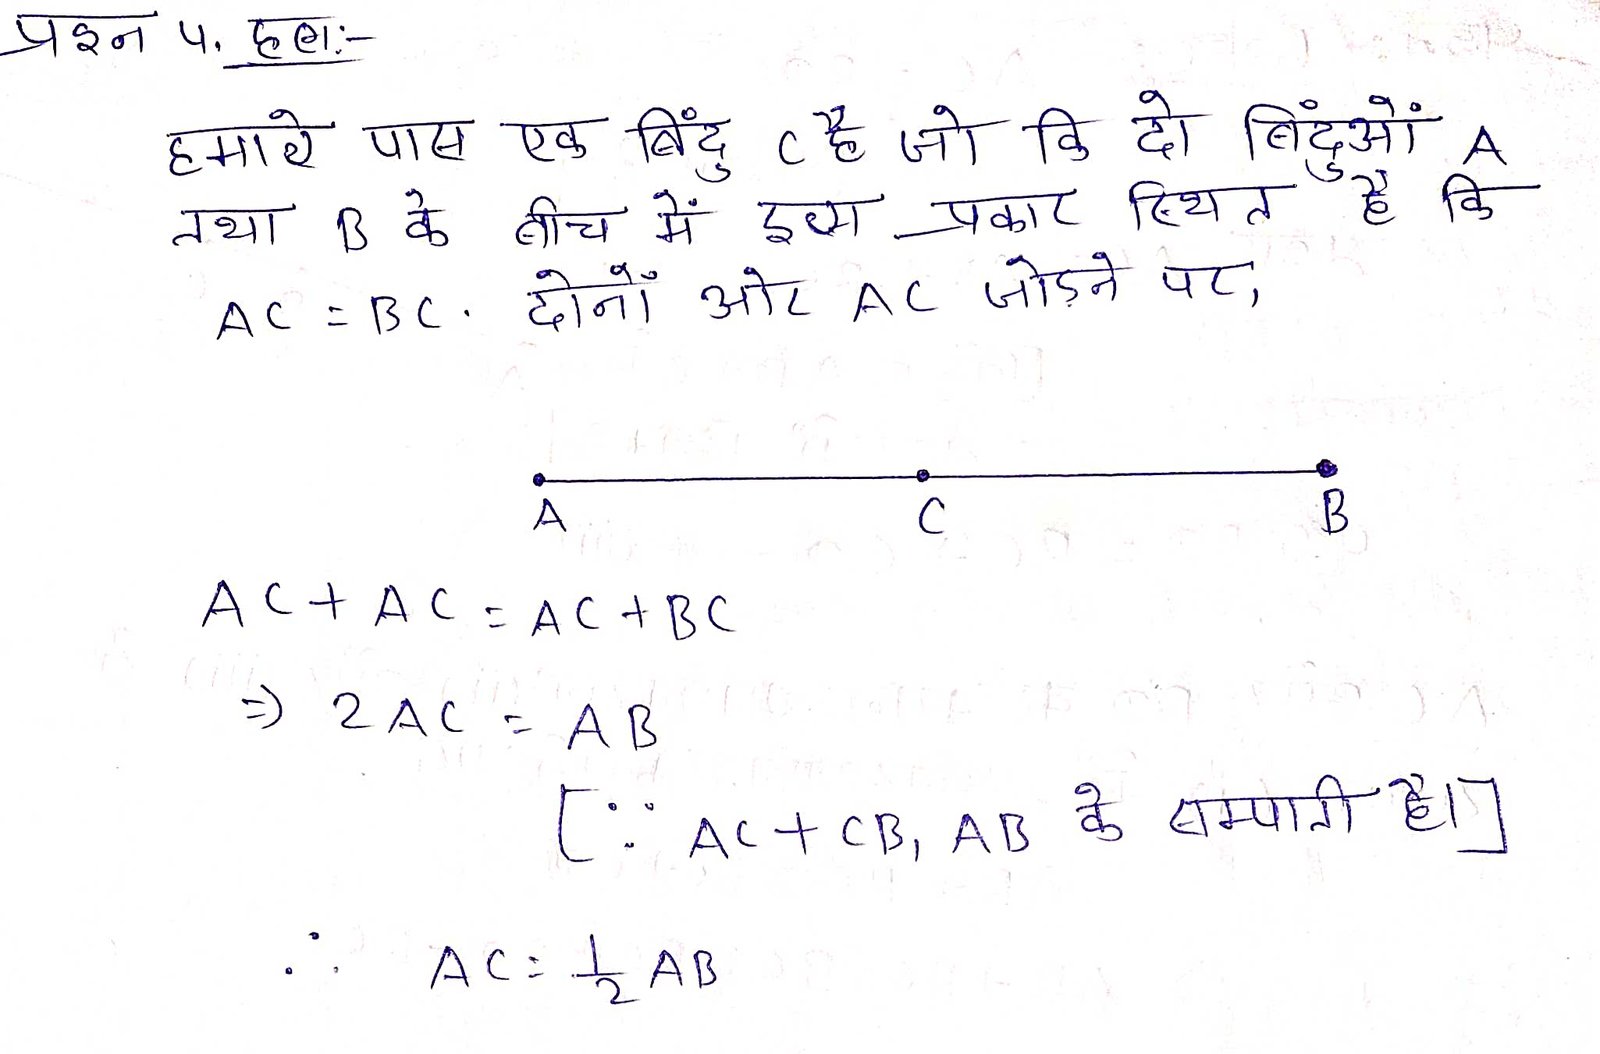 प्रश्न 4. हल:-
हमारे पास एक बिंदु C है जो कि दो बिंदुओं A
तथा B के बीच में इस प्रकार स्थित है कि
AC = BC. दोनों ओर AC जोड़ने पर,
A C B
AC + AC = AC + BC
⇒ 2AC = AB
[∵ AC + CB, AB के सम्पाती है।]
∴ AC = 1/2 AB